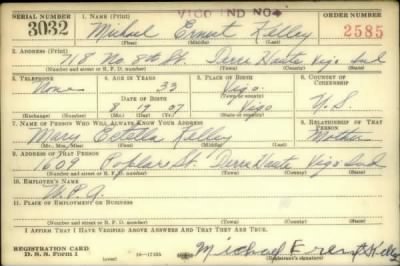 VIGO IND NO 4
SERIAL NUMBER 1. NAME (Print) ORDER NUMBER
3032 Michael Ernest Kelley 2585
(First) (Middle) (Last)
2. ADDRESS (Print)
718 No. 8th St. Terre Haute Vigo Ind
(Number and street or R. F. D. number) (Town) (County) (State)
3. TELEPHONE 4. AGE IN YEARS 5. PLACE OF BIRTH 6. COUNTRY OF CITIZENSHIP
None 33 Vigo
DATE OF BIRTH (Town or county)
8 19 07 Vigo U.S.
(Exchange) (Number) (Mo.) (Day) (Yr.) (State or country)
7. NAME OF PERSON WHO WILL ALWAYS KNOW YOUR ADDRESS 8. RELATIONSHIP OF THAT PERSON
Mary Estella Kelley Mother
(Mr., Mrs., Miss) (First) (Middle) (Last)
9. ADDRESS OF THAT PERSON
1609 Poplar St. Terre Haute Vigo Ind
(Number and street or R. F. D. number) (Town) (County) (State)
10. EMPLOYER'S NAME
W.P.A.
11. PLACE OF EMPLOYMENT OR BUSINESS
(Number and street or R. F. D. number) (Town) (County) (State)
I AFFIRM THAT I HAVE VERIFIED ABOVE ANSWERS AND THAT THEY ARE TRUE.
REGISTRATION CARD
D. S. S. Form 1 16—17105 Michael Ernest Kelley
(Registrant's signature)